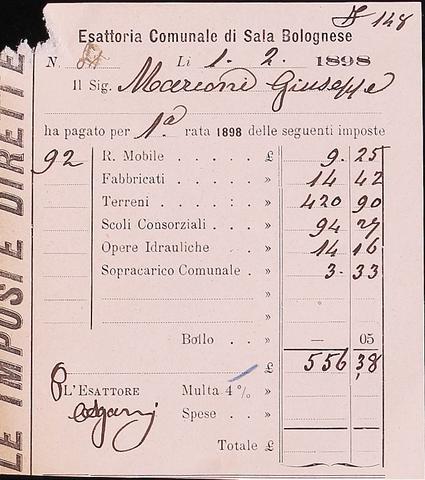 № 148
Esattoria Comunale di Sala Bolognese
N. Li 1. 2. 1898
Il Sig. Marconi Giuseppe
ha pagato per 1ª rata 1898 delle seguenti imposte
92 R. Mobile . . . . . £ 9. 25
Fabbricati . . . . » 14 42
Terreni . . . . : . » 420 90
Scoli Consorziali . . . » 94 27
Opere Idrauliche . . . » 14 16
Sopracarico Comunale . » 3. 33
»
»
Bollo . . » — 05
£ 556,38
L'ESATTORE Multa 4 % . »
Spese . . »
Totale £
LE IMPOSTE DIRETTE